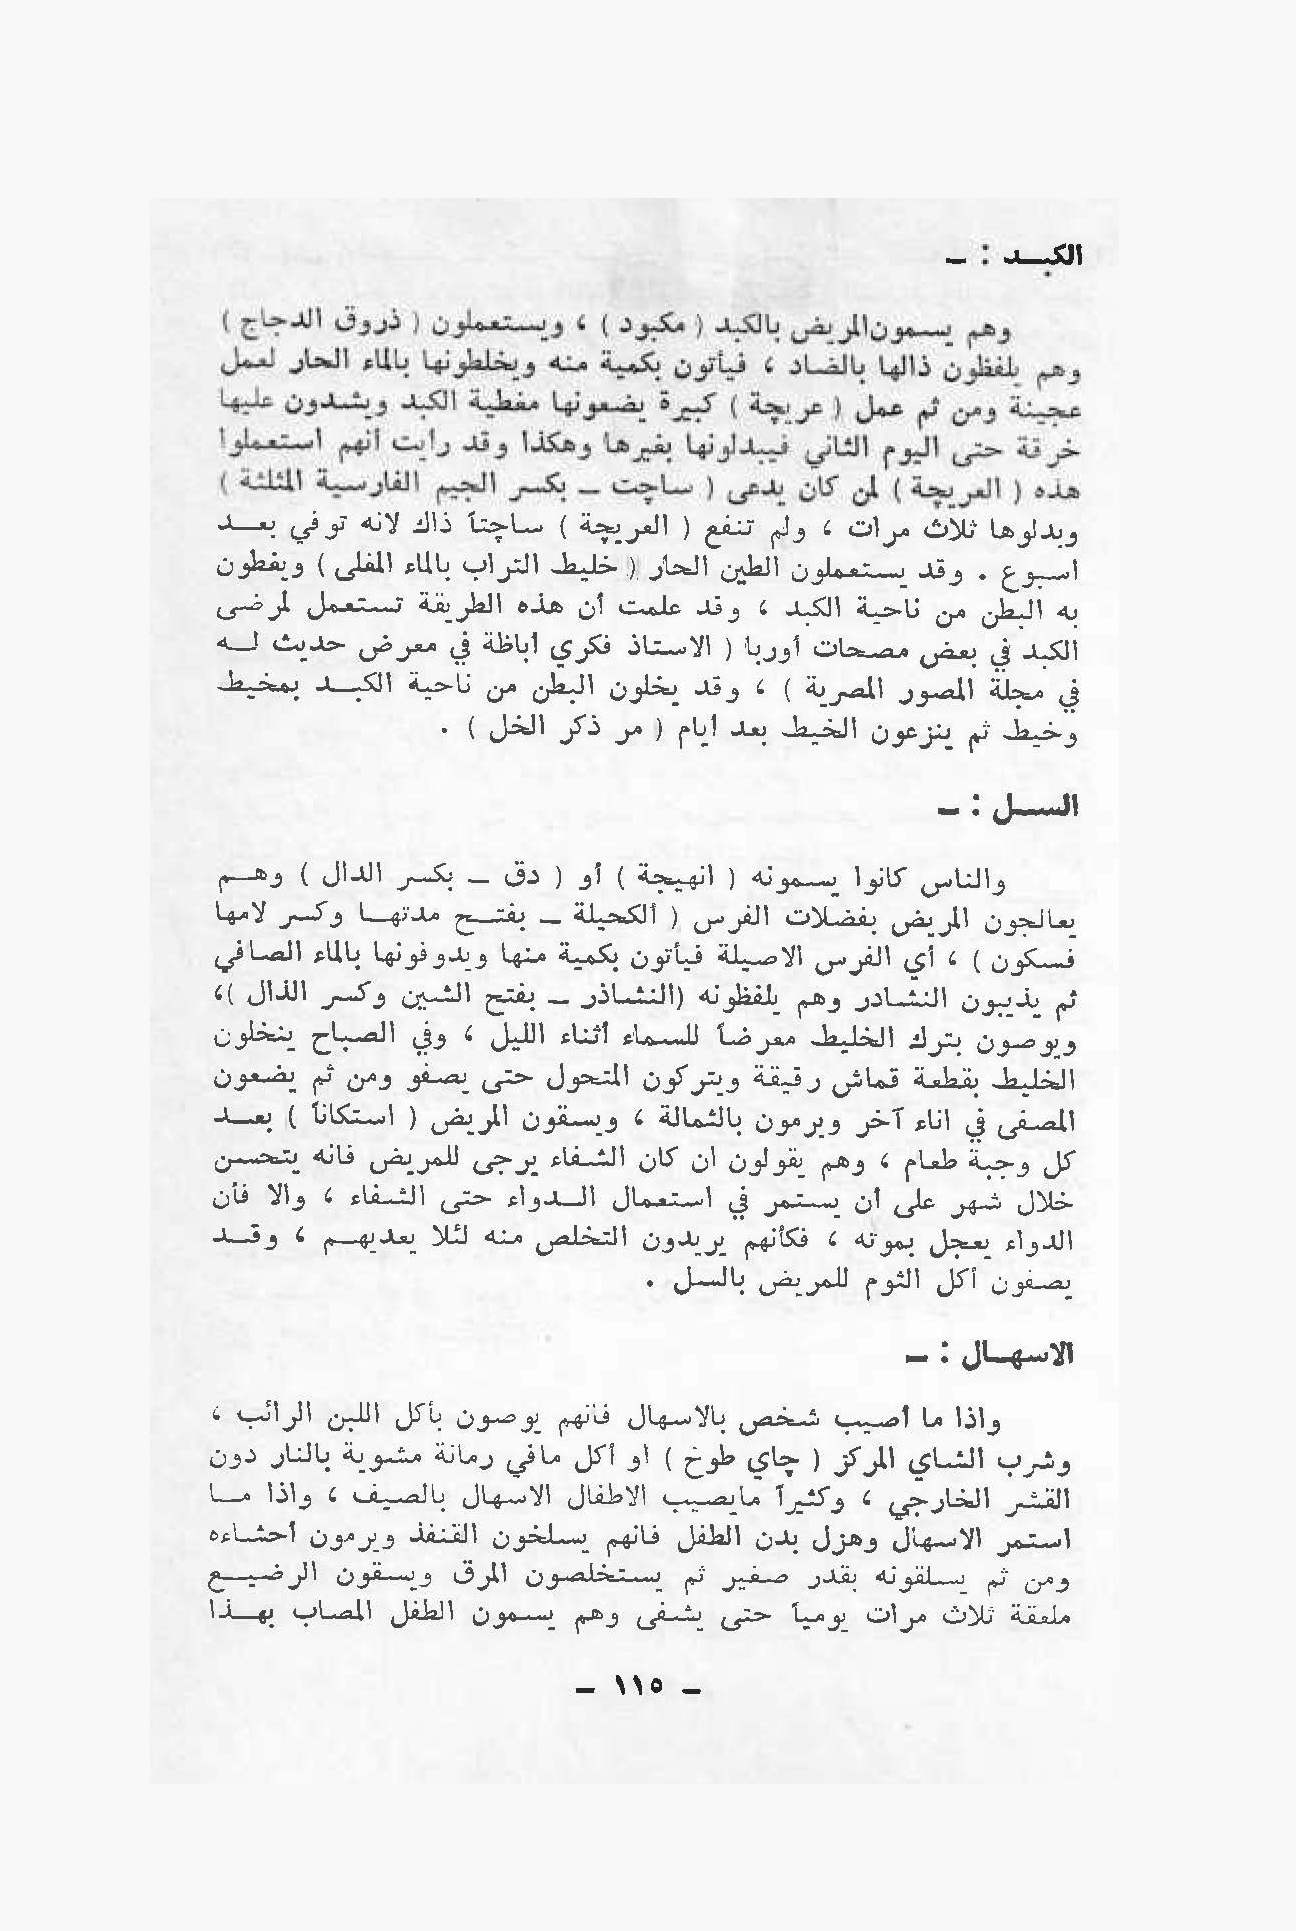 الكبـد : ـ
وهم يسمون المريض بالكبد ( مكبود ) ، ويستعملون ( ذروق الدجاج )
وهم يلفظون ذالها بالضاد ، فيأتون بكمية منه ويخلطونها بالماء الحار لعمل
عجينة ومن ثم عمل ( عريچة ) كبيرة يضعونها مغطية الكبد ويشدون عليها
خرقة حتى اليوم الثاني فيبدلونها بغيرها وهكذا وقد رايت أنهم استعملوا
هذه ( العريچة ) لمن كان يدعى ( ساچت ـ بكسر الجيم الفارسية المثلثة )
وبدلوها ثلاث مرات ، ولم تنفع ( العريچة ) ساچتاً ذاك لانه توفي بعــد
اسبوع . وقد يستعملون الطين الحار ( خليط التراب بالماء المغلى ) ويغطون
به البطن من ناحية الكبد ، وقد علمت أن هذه الطريقة تستعمل لمرضى
الكبد في بعض مصحات أوربا ( الاستاذ فكري أباظة في معرض حديث لــه
في مجلة المصور المصرية ) ، وقد يخلون البطن من ناحية الكبــد بمخيط
وخيط ثم ينزعون الخيط بعد أيام ( مر ذكر الخل ) .
الســل : ـ
والناس كانوا يسمونه ( انهيجة ) أو ( دق ـ بكسر الدال ) وهــم
يعالجون المريض بفضلات الفرس ( ألكحيلة ـ بفتــح مدتهــا وكسر لامها
فسكون ) ، أي الفرس الاصيلة فيأتون بكمية منها ويدوفونها بالماء الصافي
ثم يذيبون النشادر وهم يلفظونه (النشاذر ـ بفتح الشين وكسر الذال )،
ويوصون بترك الخليط معرضاً للسماء أثناء الليل ، وفي الصباح ينخلون
الخليط بقطعة قماش رقيقة ويتركون المتحول حتى يصفو ومن ثم يضعون
المصفى في اناء آخر ويرمون بالثمالة ، ويسقون المريض ( استكاناً ) بعــد
كل وجبة طعام ، وهم يقولون ان كان الشفاء يرجى للمريض فانه يتحسن
خلال شهر على أن يستمر في استعمال الــدواء حتى الشفاء ، والا فأن
الدواء يعجل بموته ، فكأنهم يريدون التخلص منه لئلا يعديهــم ، وقــد
يصفون أكل الثوم للمريض بالسل .
الاسهــال : ـ
واذا ما أصيب شخص بالاسهال فانهم يوصون بأكل اللبن الرائب ،
وشرب الشاي المركز ( چاي طوخ ) او أكل مافي رمانة مشوية بالنار دون
القشر الخارجي ، وكثيراً مايصيب الاطفال الاسهال بالصيف ، واذا مــا
استمر الاسهال وهزل بدن الطفل فانهم يسلخون القنفذ ويرمون أحشاءه
ومن ثم يسلقونه بقدر صغير ثم يستخلصون المرق ويسقون الرضيــع
ملعقة ثلاث مرات يومياً حتى يشفى وهم يسمون الطفل المصاب بهــذا
ـ ١١٥ ـ